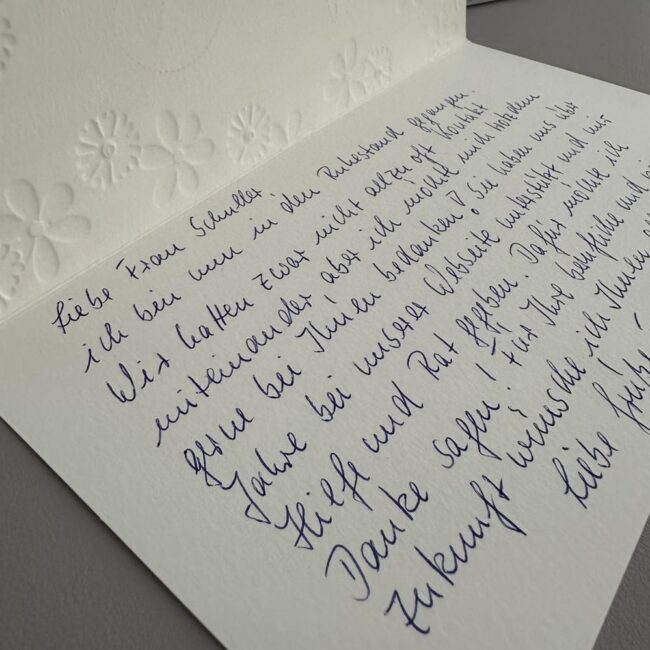 Liebe Frau Schuller,
ich bin nun in den Ruhestand gegangen.
Wir hatten zwar nicht allzu oft Kontakt
miteinander aber ich möchte mich trotzdem
gerne bei Ihnen bedanken! Sie haben uns über
Jahre bei unserer Webseite unterstützt und mit
Hilfe und Rat gegeben. Dafür möchte ich
Danke sagen! Für Ihre berufliche und
Zukunft wünsche ich Ihnen
Liebe Grüße